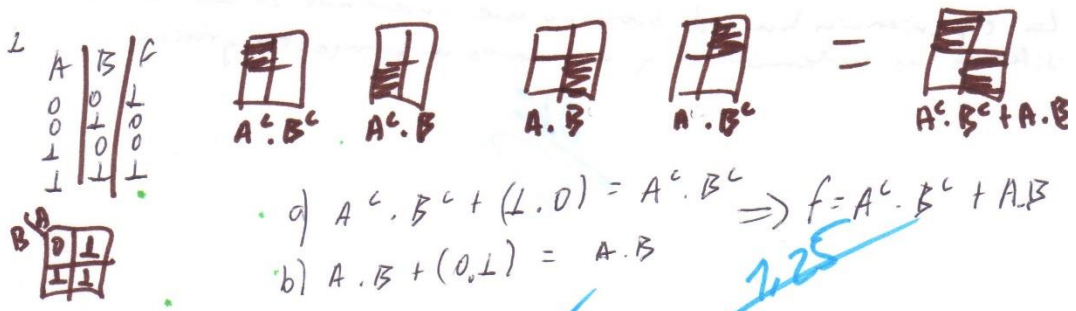 1
A B f
0 0 1
0 1 0
1 0 0
1 1 1
Aᶜ.Bᶜ Aᶜ.B A.B A.Bᶜ = Aᶜ.Bᶜ+A.B
B A
0 1
1 1
a) Aᶜ.Bᶜ + (1.0) = Aᶜ.Bᶜ => f = Aᶜ.Bᶜ + A.B
b) A.B + (0.1) = A.B
1,25